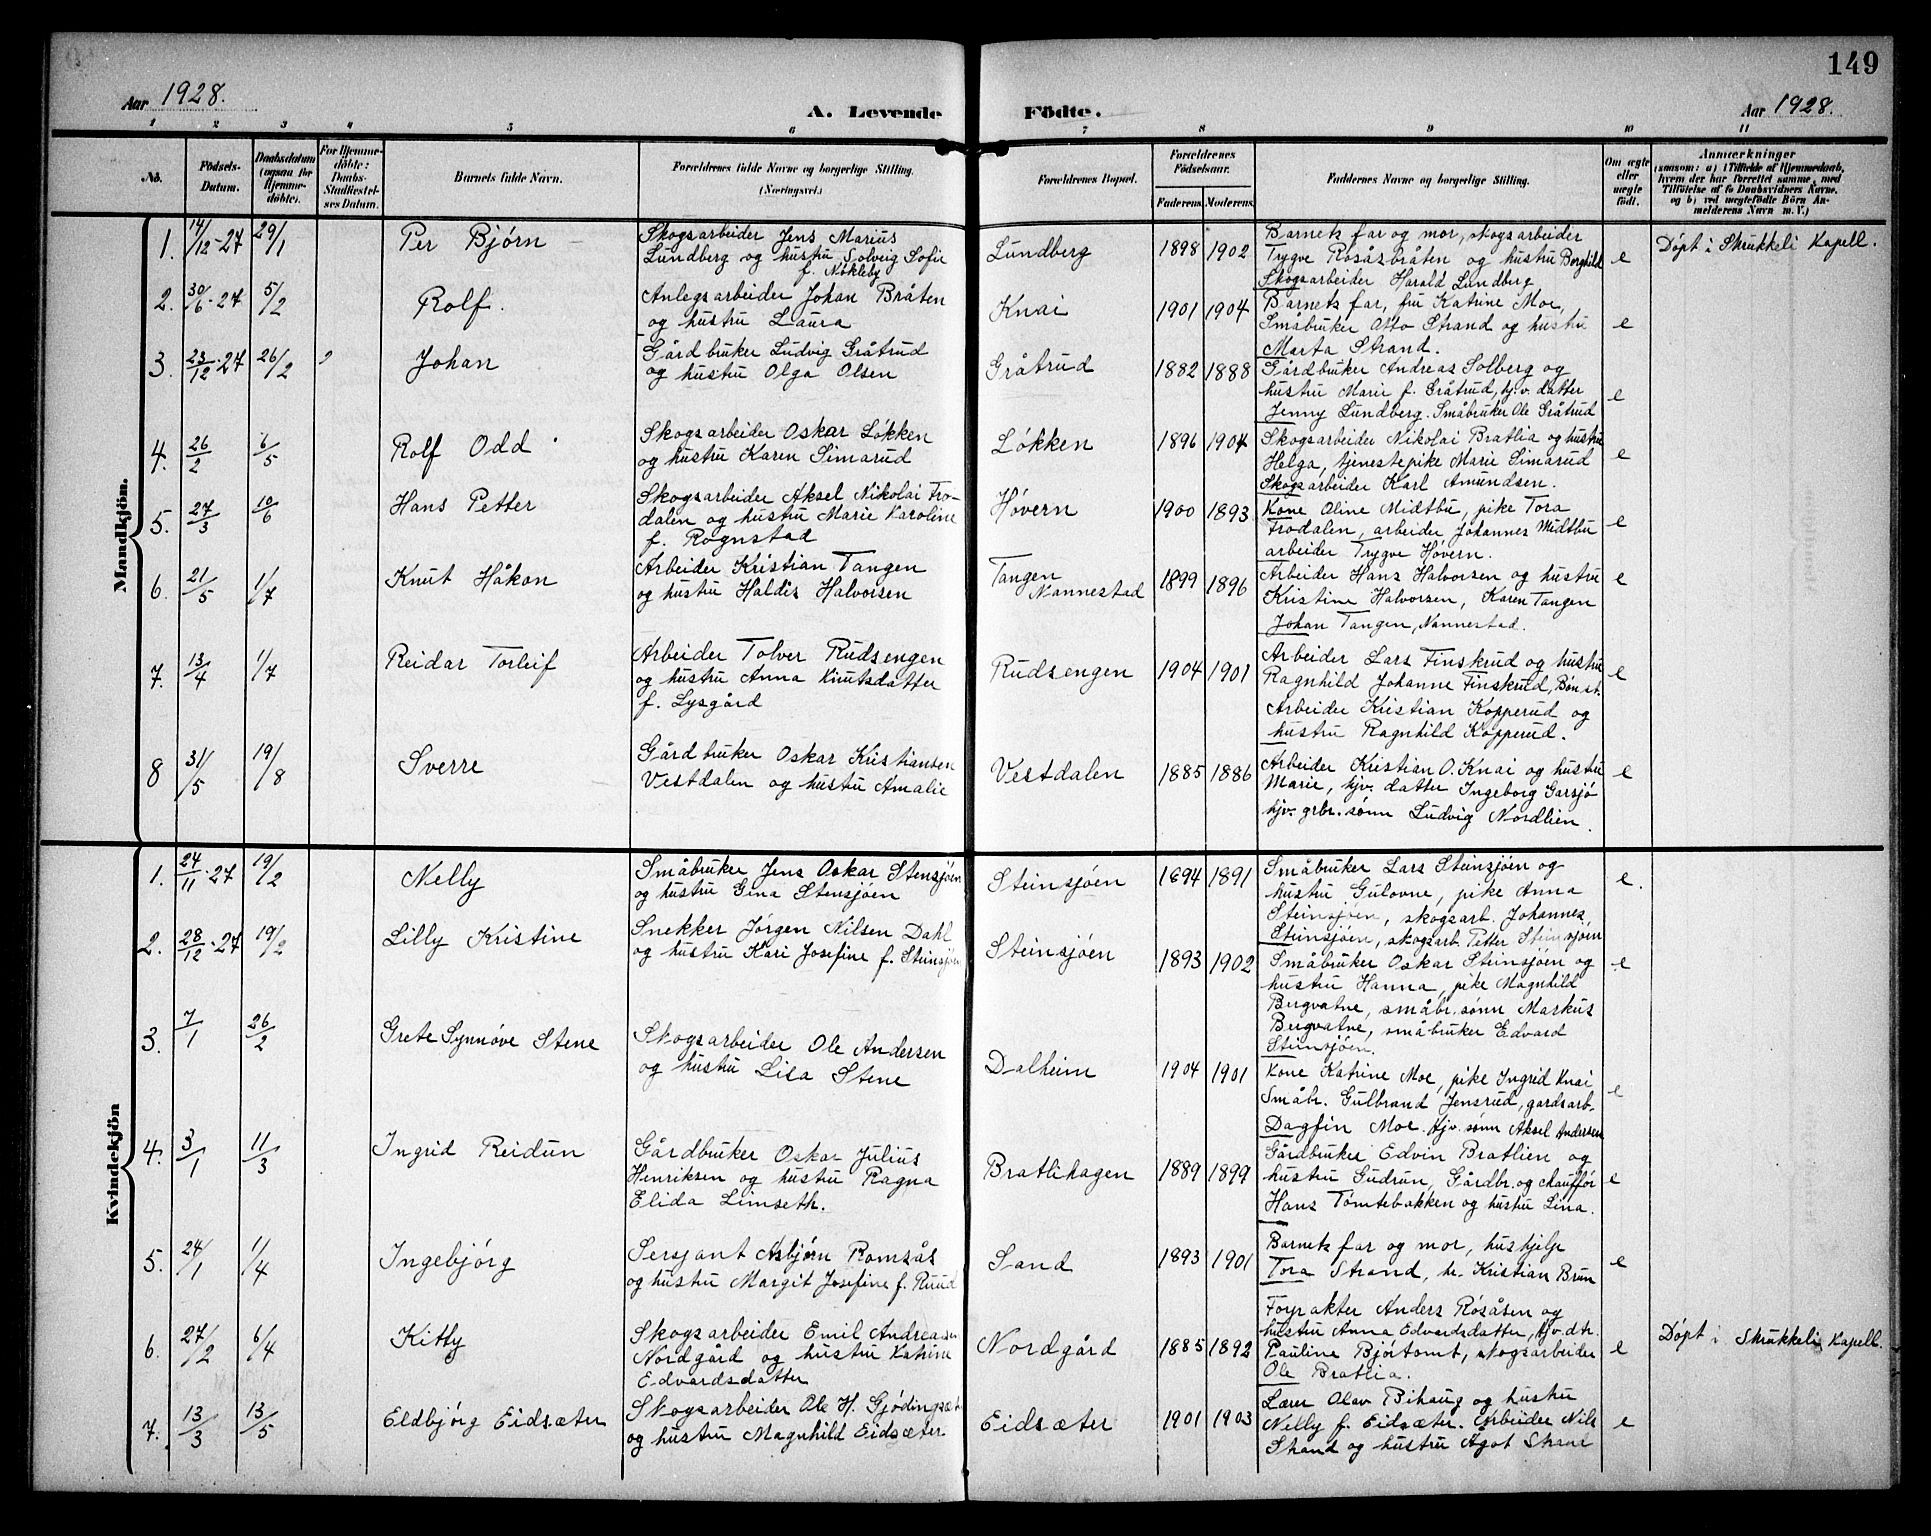 149
Aar 1928.
A. Levende Födte.
Aar 1928.
1 2 3 4 5 6 7 8 9 10 11
No.
Födsels-Datum.
Daabsdatum (ogsaa for Hjemmedöbte).
For Hjemmedöbte: Daabs-Stadfæstelses Datum.
Barnets fulde Navn.
Forældrenes fulde Navne og borgerlige Stilling. (Næringsvei.)
Forældrenes Bopæl.
Forældrenes Födselsaar.
Faderens. Moderens.
Faddernes Navne og borgerlige Stilling.
Om ægte eller uægte födt.
Anmærkninger
(saasom: a) i Tilfælde af Hjemmedaab, hvem der har forrettet samme, med Tilföielse af to Daabsvidners Navne, og b) ved uægtefödte Börn Anmelderens Navn m. V.)
Mandkjön.
1. 14/12-27 29/1 Per Bjørn
Skogsarbeider Jens Marius
Lundberg og hustru Solveig Sofie
f. Nökleby
Lundberg 1898 1902
Barnets far og mor, skogsarbeider
Trygve Rosåsbråten og hustru Borghild
Skogsarbeider Harald Lundberg
e Døpt i Skrukkeli Kapell.
2. 30/6-27 5/2 Rolf.
Anlegsarbeider Johan Bråten
og hustru Laura
Knai 1901 1904
Barnets far, fru Katrine Moe,
Småbruker Otto Strand og hustru
Marta Strand.
e
3. 23/12-27 26/2 Johan
Gårdbruker Ludvig Gråtrud
og hustru Olga Olsen
Gråtrud 1882 1888
Gårdbruker Andreas Solberg og
hustru Marie f. Gråtrud, hj.v. datter
Jenny Lundberg. Småbruker Ole Gråtrud
e
4. 26/2 6/5 Rolf Odd
Skogsarbeider Oskar Løkken
og hustru Karen Simarud
Løkken 1896 1904
Skogsarbeider Nikolai Bratlia og hustru
Helga, tjenestepike Marie Simarud
Skogsarbeider Karl Amundsen.
e
5. 27/3 10/6 Hans Petter
Skogsarbeider Aksel Nikolai Fro-
dalen og hustru Marie Karoline
f. Rognstad
Høvern 1900 1893
Kone Oline Midtbu, pike Tora
Frodalen, arbeider Johannes Midtbu
arbeider Trygve Høvern.
e
6. 21/5 1/7 Knut Håkon
Arbeider Kristian Tangen
og hustru Haldis Halvorsen
Tangen
Nannestad 1899 1896
Arbeider Hans Halvorsen og hustru
Kristine Halvorsen, Karen Tangen
Johan Tangen, Nannestad.
e
7. 13/4 1/7 Reidar Torleif
Arbeider Tolver Rudsengen
og hustru Anna Knutsdatter
f. Lysgård
Rudsengen 1904 1901
Arbeider Lars Finskrud og hustru
Ragnhild Johanne Finskrud, Bøn st.
Arbeider Kristian Kopperud og
hustru Ragnhild Kopperud.
e
8 31/5 19/8 Sverre
Gårdbruker Oskar Kristiansen
Vestdalen og hustru Amalie
Vestdalen 1885 1886
Arbeider Kristian O. Knai og hustru
Marie, hjv. datter Ingeborg Garsjø
hjv. grbr. sønn Ludvig Nordlien.
e
Kvindekjön
1. 24/11-27 19/2 Nelly
Småbruker Jens Oskar Stensjøen
og hustru Gina Stensjøen
Steinsjøen 1894 1891
Småbruker Lars Steinsjøen og
hustru Gulovne, pike Anna
Steinsjøen, skogsarb. Johannes
Steinsjøen, skogsarb. Petter Steinsjøen
e.
2. 28/12-27 19/2 Lilly Kristine
Snekker Jørgen Nilsen Dahl
og hustru Kari Josefine f. Steinsjøen
Steinsjøen 1893 1902
Småbruker Oskar Steinsjøen og
hustru Hanna, pike Magnhild
Bergvatne, småbr. sønn Markus
Bergvatne, småbruker Edvard
Steinsjøen.
e
3. 7/1 26/2 Grete Synnøve Stene
Skogsarbeider Ole Andersen
og hustru Lisa Stene
Dalheim 1904 1901
Kone Katrine Moe, pike Ingrid Knai
Småbr. Gulbrand Jensrud, gardsarb.
Dagfin Moe. hjv. sønn Aksel Andersen
e
4. 3/1 11/3 Ingrid Reidun
Gårdbruker Oskar Julius
Henriksen og hustru Ragna
Elida Limseth.
Bratlihagen 1889 1899
Gårdbruker Edvin Bratlien og
hustru Gudrun, Gårdbr. og chauffør
Hans Tømtebakken og hustru Lina.
e
5. 24/1 1/4 Ingebjórg
Sersjant Asbjørn Romsås
og hustru Margit Josefine f. Ruud
Sand 1893 1901
Barnets far og mor, hushjelp
Tora Strand, hr. Kristian Brun
e
6. 27/2 6/4 Kitty
Skogsarbeider Emil Andreasen
Nordgård og hustru Katrine
Edvardsdatter
Nordgård 1885 1892
Forpakter Anders Røsåsen og
hustru Anna Edvardsdatter, hjv. dtr.
Pauline Bjørtomt, skogsarbeider
Ole Bratlia.
e Døpt i Skrukkeli Kapell.
7. 13/3 13/5 Eldbjørg Eidsæter
Skogsarbeider Ole H. Gjødingsæter
og hustru Magnhild Eidsæter
Eidsæter 1901 1903
Lærer Olav Bihaug og hustru
Nelly f. Eidsæter. Arbeider Nils
Strand og hustru Ågot Strand
e